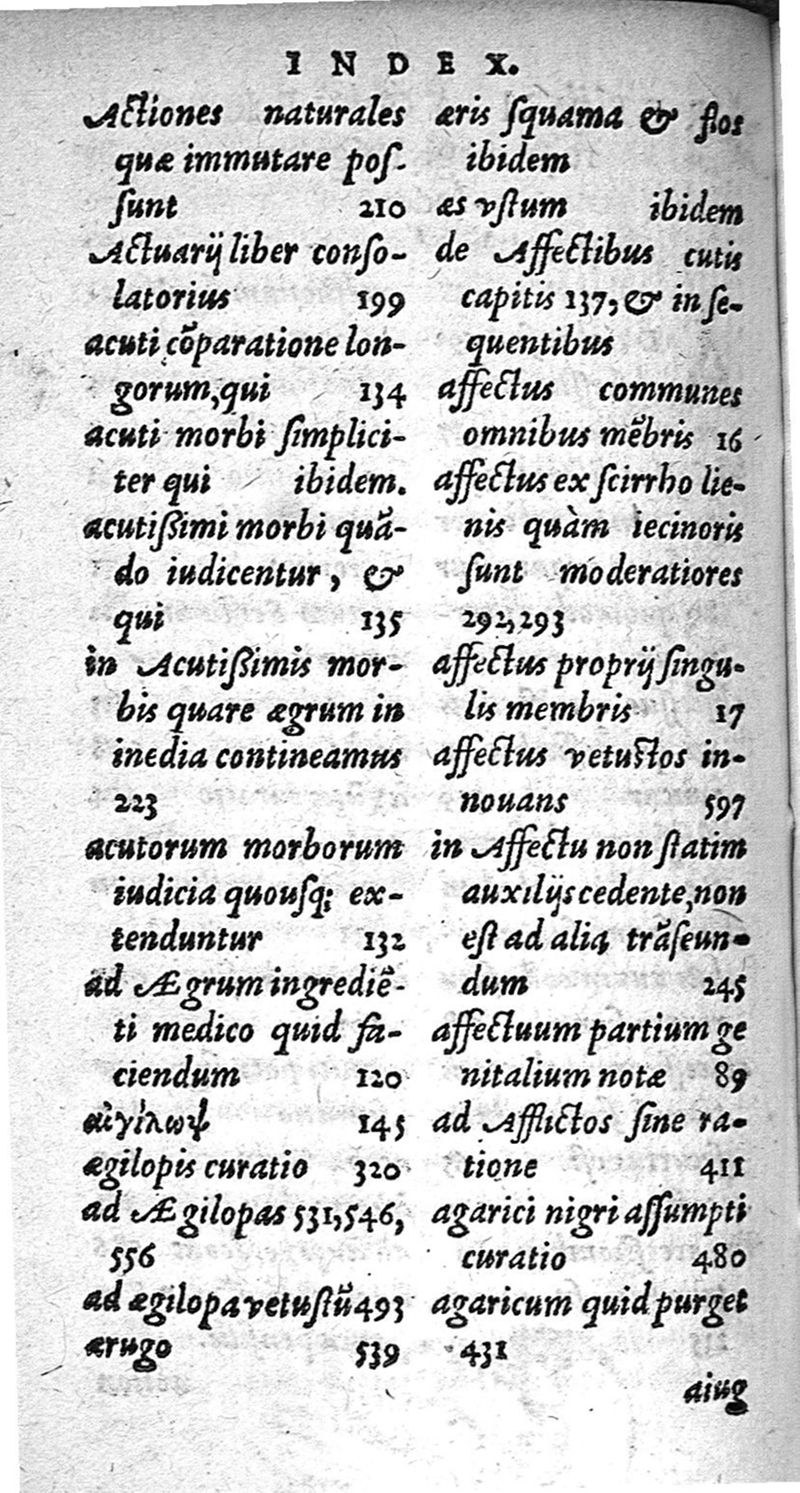 INDEX.
Actiones naturales
quæ immutare pos-
sunt 210
Actuarij liber conso-
latorius 199
acuti cōparatione lon-
gorum, qui 134
acuti morbi simplici-
ter qui ibidem.
acutißimi morbi quā-
do iudicentur, &
qui 135
in Acutißimis mor-
bis quare ægrum in
inedia contineamus
223
acutorum morborum
iudicia quousq; ex-
tenduntur 132
ad Ægrum ingrediē-
ti medico quid fa-
ciendum 120
αἰγίλωψ 145
ægilopis curatio 320
ad Ægilopas 531, 546,
556
ad ægilopa vetustū 493
ærugo 539
æris squama & flos
ibidem
æs vstum ibidem
de Affectibus cutis
capitis 137, & in se-
quentibus
affectus communes
omnibus mēbris 16
affectus ex scirrho lie-
nis quàm iecinoris
sunt moderatiores
292, 293
affectus proprij singu-
lis membris 17
affectus vetustos in-
nouans 597
in Affectu non statim
auxilijs cedente, non
est ad alia trāseun-
dum 245
affectuum partium ge
nitalium notæ 89
ad Afflictos sine ra-
tione 411
agarici nigri assumpti
curatio 480
agaricum quid purget
431
aiug